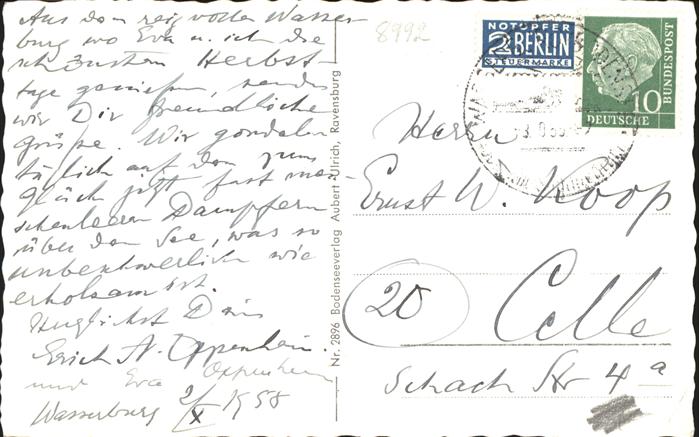 Aus dem reizvollen Wasser-
burg wo Eva u. ich die
schönsten Herbst-
tage genießen, senden
wir Dir freundliche
Grüße. Wir gondeln
täglich auf den zum
Glück jetzt fast men-
schenleeren Dampfern
über den See, was so
unbeschwerlich wie
erholsam ist.
Herzlichst Dein
Erich A. Oppenheim.
und Eva Oppenheim
Wasserburg 2/X 1958
Nr. 2896 Bodenseeverlag Aubert Ulrich, Ravensburg
8992
NOTOPFER
2 BERLIN
STEUERMARKE
10
DEUTSCHE
BUNDESPOST
Herrn
Ernst W. Koop
20 Celle
Schach Str 4a